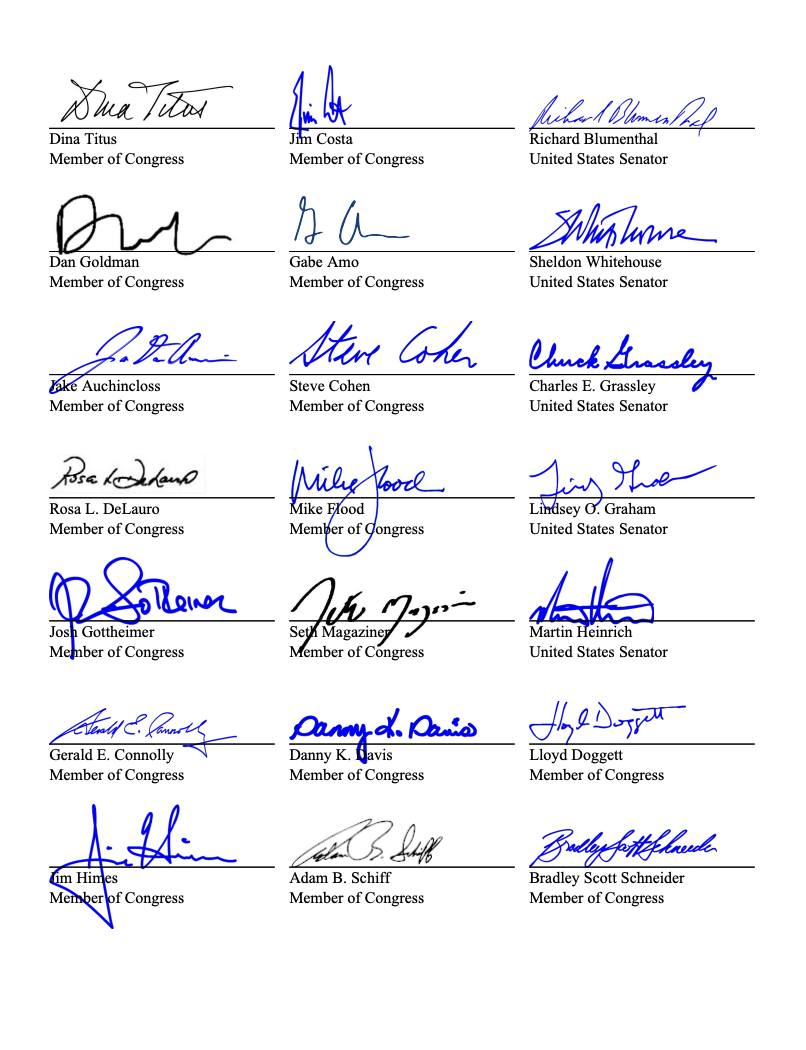 Dina Titus
Dina Titus
Member of Congress
Jim Costa
Jim Costa
Member of Congress
Richard Blumenthal
Richard Blumenthal
United States Senator
Dan Goldman
Member of Congress
Gabe Amo
Member of Congress
SWhitehouse
Sheldon Whitehouse
United States Senator
Jake Auchincloss
Member of Congress
Steve Cohen
Steve Cohen
Member of Congress
Chuck Grassley
Charles E. Grassley
United States Senator
Rosa L. DeLauro
Rosa L. DeLauro
Member of Congress
Mike Flood
Mike Flood
Member of Congress
Lindsey O. Graham
United States Senator
Gottheimer
Josh Gottheimer
Member of Congress
Seth Magaziner
Member of Congress
Martin Heinrich
United States Senator
Gerald E. Connolly
Gerald E. Connolly
Member of Congress
Danny K. Davis
Danny K. Davis
Member of Congress
Lloyd Doggett
Lloyd Doggett
Member of Congress
Jim Himes
Jim Himes
Member of Congress
Adam B. Schiff
Adam B. Schiff
Member of Congress
Bradley Scott Schneider
Bradley Scott Schneider
Member of Congress